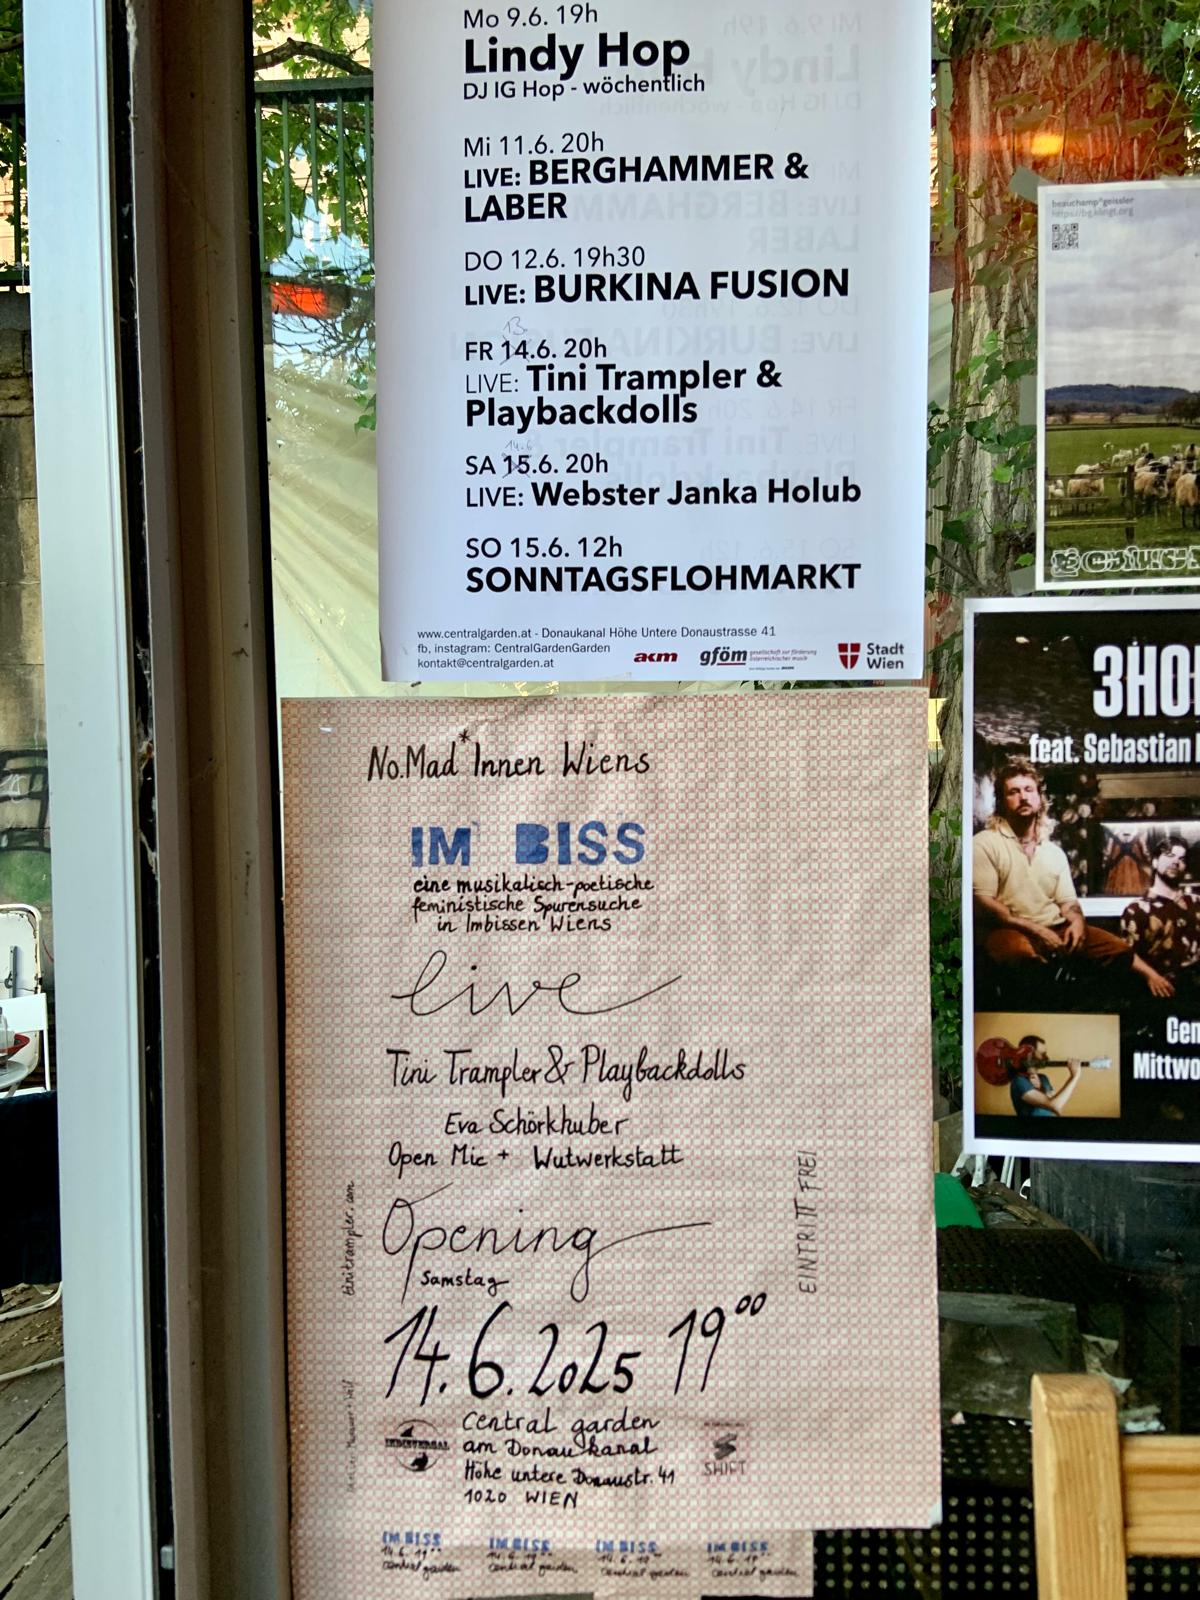 Mo 9.6. 19h
Lindy Hop
DJ IG Hop - wöchentlich
Mi 11.6. 20h
LIVE: BERGHAMMER &
LABER
DO 12.6. 19h30
LIVE: BURKINA FUSION
13.
FR 14.6. 20h
LIVE: Tini Trampler &
Playbackdolls
14.6
SA 15.6. 20h
LIVE: Webster Janka Holub
SO 15.6. 12h
SONNTAGSFLOHMARKT
www.centralgarden.at - Donaukanal Höhe Untere Donaustrasse 41
fb, instagram: CentralGardenGarden
kontakt@centralgarden.at
akm
gföm gesellschaft zur förderung
österreichischer musik
Stadt
Wien
No.Mad*Innen Wiens
IM BISS
eine musikalisch-poetische
feministische Spurensuche
in Imbissen Wiens
live
Tini Trampler & Playbackdolls
Eva Schörkhuber
Open Mic + Wutwerkstatt
EINTRITT FREI
tinitrampler.com
Opening
Samstag
14.6.2025 19⁰⁰
Central garden
am Donaukanal
Höhe untere Donaustr. 41
1020 WIEN
SHIFT
IM BISS
14.6. 19⁰⁰
central garden
IM BISS
14.6. 19⁰⁰
central garden
IM BISS
14.6. 19⁰⁰
central garden
IM BISS
14.6. 19⁰⁰
central garden
beauchamp*geissler
https://bg.klingt.org
3HO
feat. Sebastian
Cen
Mittwo